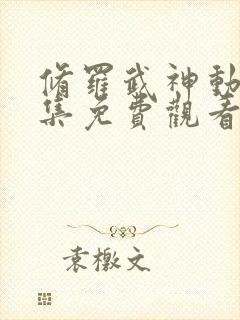 脩羅武神動
集免費觀看
袁檄文